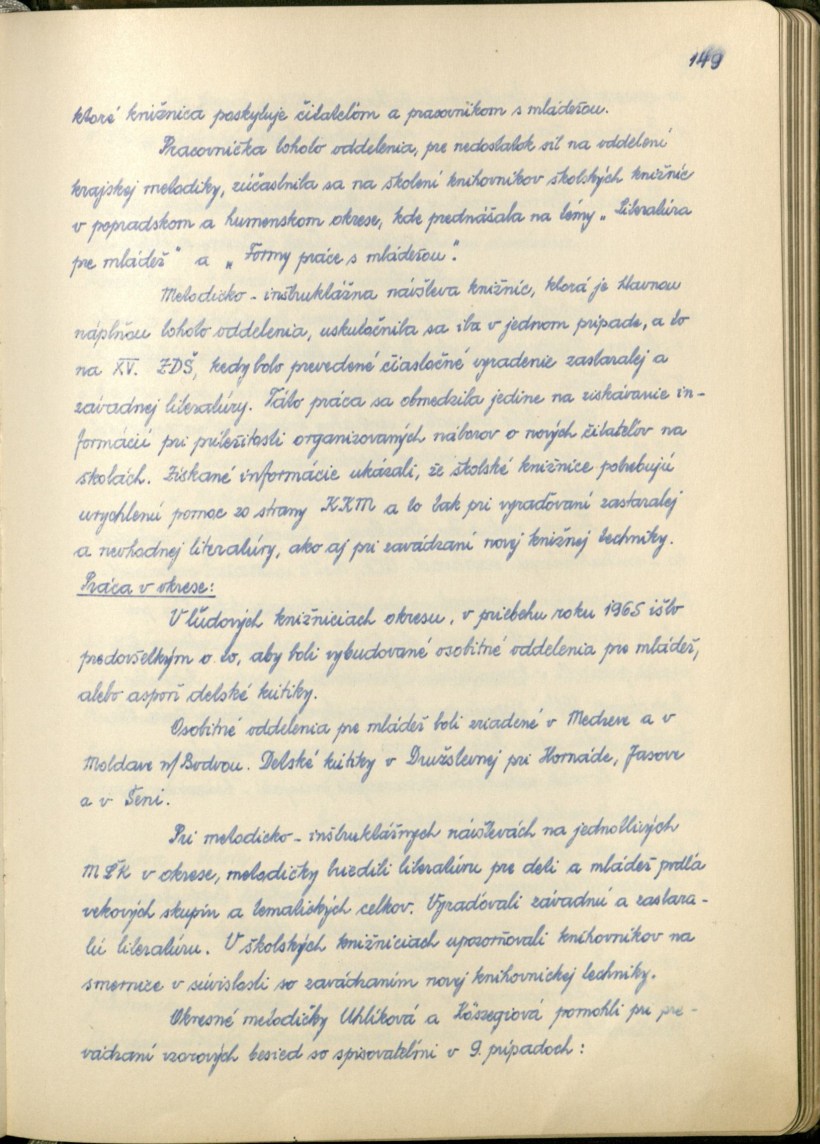 149
ktoré knižnica poskytuje čitateľom a pracovníkom s mládežou.
Pracovníčka tohoto oddelenia, pre nedostatok síl na oddelení
krajskej metodiky, zúčastnila sa na školení knihovníkov školských knižníc
v popradskom a humenskom okrese, kde prednášala na témy „Literatúra
pre mládež" a „Formy práce s mládežou".
Metodicko - inštruktážna návšteva knižníc, ktorá je hlavnou
náplňou tohoto oddelenia, uskutočnila sa iba v jednom prípade, a to
na XV. ZDŠ, kedy bolo prevedené čiastočné vyradenie zastaralej a
závadnej literatúry. Táto práca sa obmedzila jedine na získavanie in-
formácií pri príležitosti organizovaných náborov o nových čitateľov na
školách. Získané informácie ukázali, že školské knižnice potrebujú
urýchlenú pomoc zo strany KKM a to tak pri vyraďovaní zastaralej
a nevhodnej literatúry, ako aj pri zavádzaní novej knižnej techniky.
Práca v okrese:
V ľudových knižniciach okresu, v priebehu roku 1965 išlo
predovšetkým o to, aby boli vybudované osobitné oddelenia pre mládež,
alebo aspoň detské kútiky.
Osobitné oddelenia pre mládež boli zriadené v Medzeve a v
Moldave n/Bodvou. Detské kútiky v Družstevnej pri Hornáde, Jasove
a v Seni.
Pri metodicko - inštruktážnych návštevách na jednotlivých
MĽK v okrese, metodičky triedili literatúru pre deti a mládež podľa
vekových skupín a tematických celkov. Vyraďovali závadnú a zastara-
lú literatúru. V školských knižniciach upozorňovali knihovníkov na
smernice v súvislosti so zavádzaním novej knihovníckej techniky.
Okresné metodičky Uhlíková a Köszegiová pomohli pri pre-
vádzaní vzorových besied so spisovateľmi v 9. prípadoch: